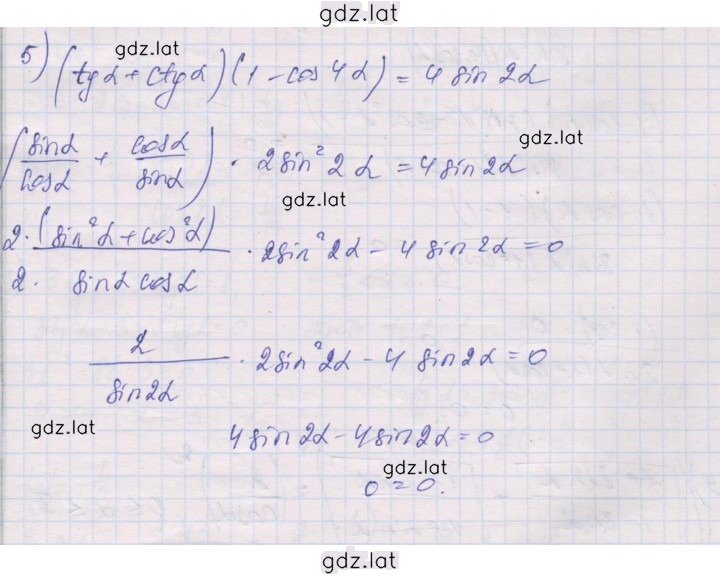 gdz.lat
gdz.lat
5) (tgα + ctgα)(1 - cos4α) = 4 sin2α
gdz.lat
(sinα/cosα + cosα/sinα) · 2sin²2α = 4sin2α
gdz.lat
2·(sin²α + cos²α)/2· sinα cosα · 2sin²2α - 4 sin2α = 0
2/sin2α · 2sin²2α - 4 sin2α = 0
gdz.lat
4sin2α - 4sin2α = 0
gdz.lat
0 = 0.
gdz.lat